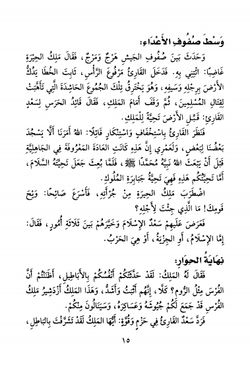 وَسْطَ صُفُوفِ الأَعْدَاءِ:
وَحَدَثَ بَيْنَ صُفُوفِ الجَيْشِ هَرْجٌ وَمَرْجٌ، فَقَالَ مَلِكُ الحِيْرَةِ
غَاضِبًا: ائْتِنِي بِهِ. فَدَخَلَ القَارِئُ مَرْفُوعَ الرَّأْسِ، ثَابِتَ الخُطَا يَدُكُّ
الأَرْضَ بِرِجْلِهِ وَسَيْفِهِ، وَهُوَ يَخْتَرِقُ تِلْكَ الجُمُوعَ الحَاشِدَةَ الَّتِي تَأَهَّبَتْ
لِقِتَالِ المُسْلِمِينَ، ثُمَّ وَقَفَ أَمَامَ المَلِكِ، فَقَالَ قَائِدُ الحَرَسِ لِسَعْدٍ
القَارِئِ: قَبِّلِ الأَرْضَ تَحِيَّةً لِلْمَلِكِ.
فَنَظَرَ القَارِئُ بِاسْتِخْفَافٍ وَاسْتِنْكَارٍ قَائِلًا: اللهُ أَمَرَنَا أَلَّا يَسْجُدَ
بَعْضُنَا لِبَعْضٍ، وَلَعَمْرِي إِنَّ هَذِهِ كَانَتِ العَادَةَ المَعْرُوفَةَ فِي الجَاهِلِيَّةِ
قَبْلَ أَنْ يَبْعَثَ اللهُ نَبِيَّهُ مُحَمَّدًا ﷺ، فَلَمَّا بُعِثَ جَعَلَ تَحِيَّتَهُ السَّلَامَ،
أَمَّا تَحِيَّتُكُمْ هَذِهِ فَهِيَ تَحِيَّةُ جَبَابِرَةِ المُلُوكِ.
اضْطَرَبَ مَلِكُ الحِيْرَةِ مِنْ جُرْأَتِهِ، فَأَسْرَعَ صَائِحًا: وَيْحَ
قَوْمِكَ! مَا الَّذِي جِئْتَ لِأَجْلِهِ؟
فَعَرَضَ عَلَيْهِمْ سَعْدٌ الإِسْلَامَ وَخَيَّرَهُمْ بَيْنَ ثَلَاثَةِ أُمُورٍ، فَقَالَ:
إِمَّا الإِسْلَامُ، أَوِ الجِزْيَةُ، أَوْ هِيَ الحَرْبُ.
نِهَايَةُ الحِوَارِ:
فَقَالَ لَهُ المَلِكُ: لَقَدْ حَدَّثَتْكُمْ أَنْفُسُكُمْ بِالأَبَاطِيلِ، أَظَنَنْتُمْ أَنَّ
الفُرْسَ مِثْلُ الرُّومِ؟ كَلَّا، إِنَّهُمْ أَثْبَتُ وَأَشَدُّ، وَهَذَا المَلِكُ أَزْدَشِيرُ مَلِكُ
الفُرْسِ قَدْ جَمَعَ لَكُمْ جُيُوشَهُ وَعَسَاكِرَهُ، وَسَيَنَالُونَ مِنْكُمْ.
فَرَدَّ سَعْدٌ القَارِئُ فِي حَزْمٍ وَقُوَّةٍ: أَيُّهَا المَلِكُ لَقَدْ تَشَرَّفْتَ بِالبَاطِلِ،
١٥